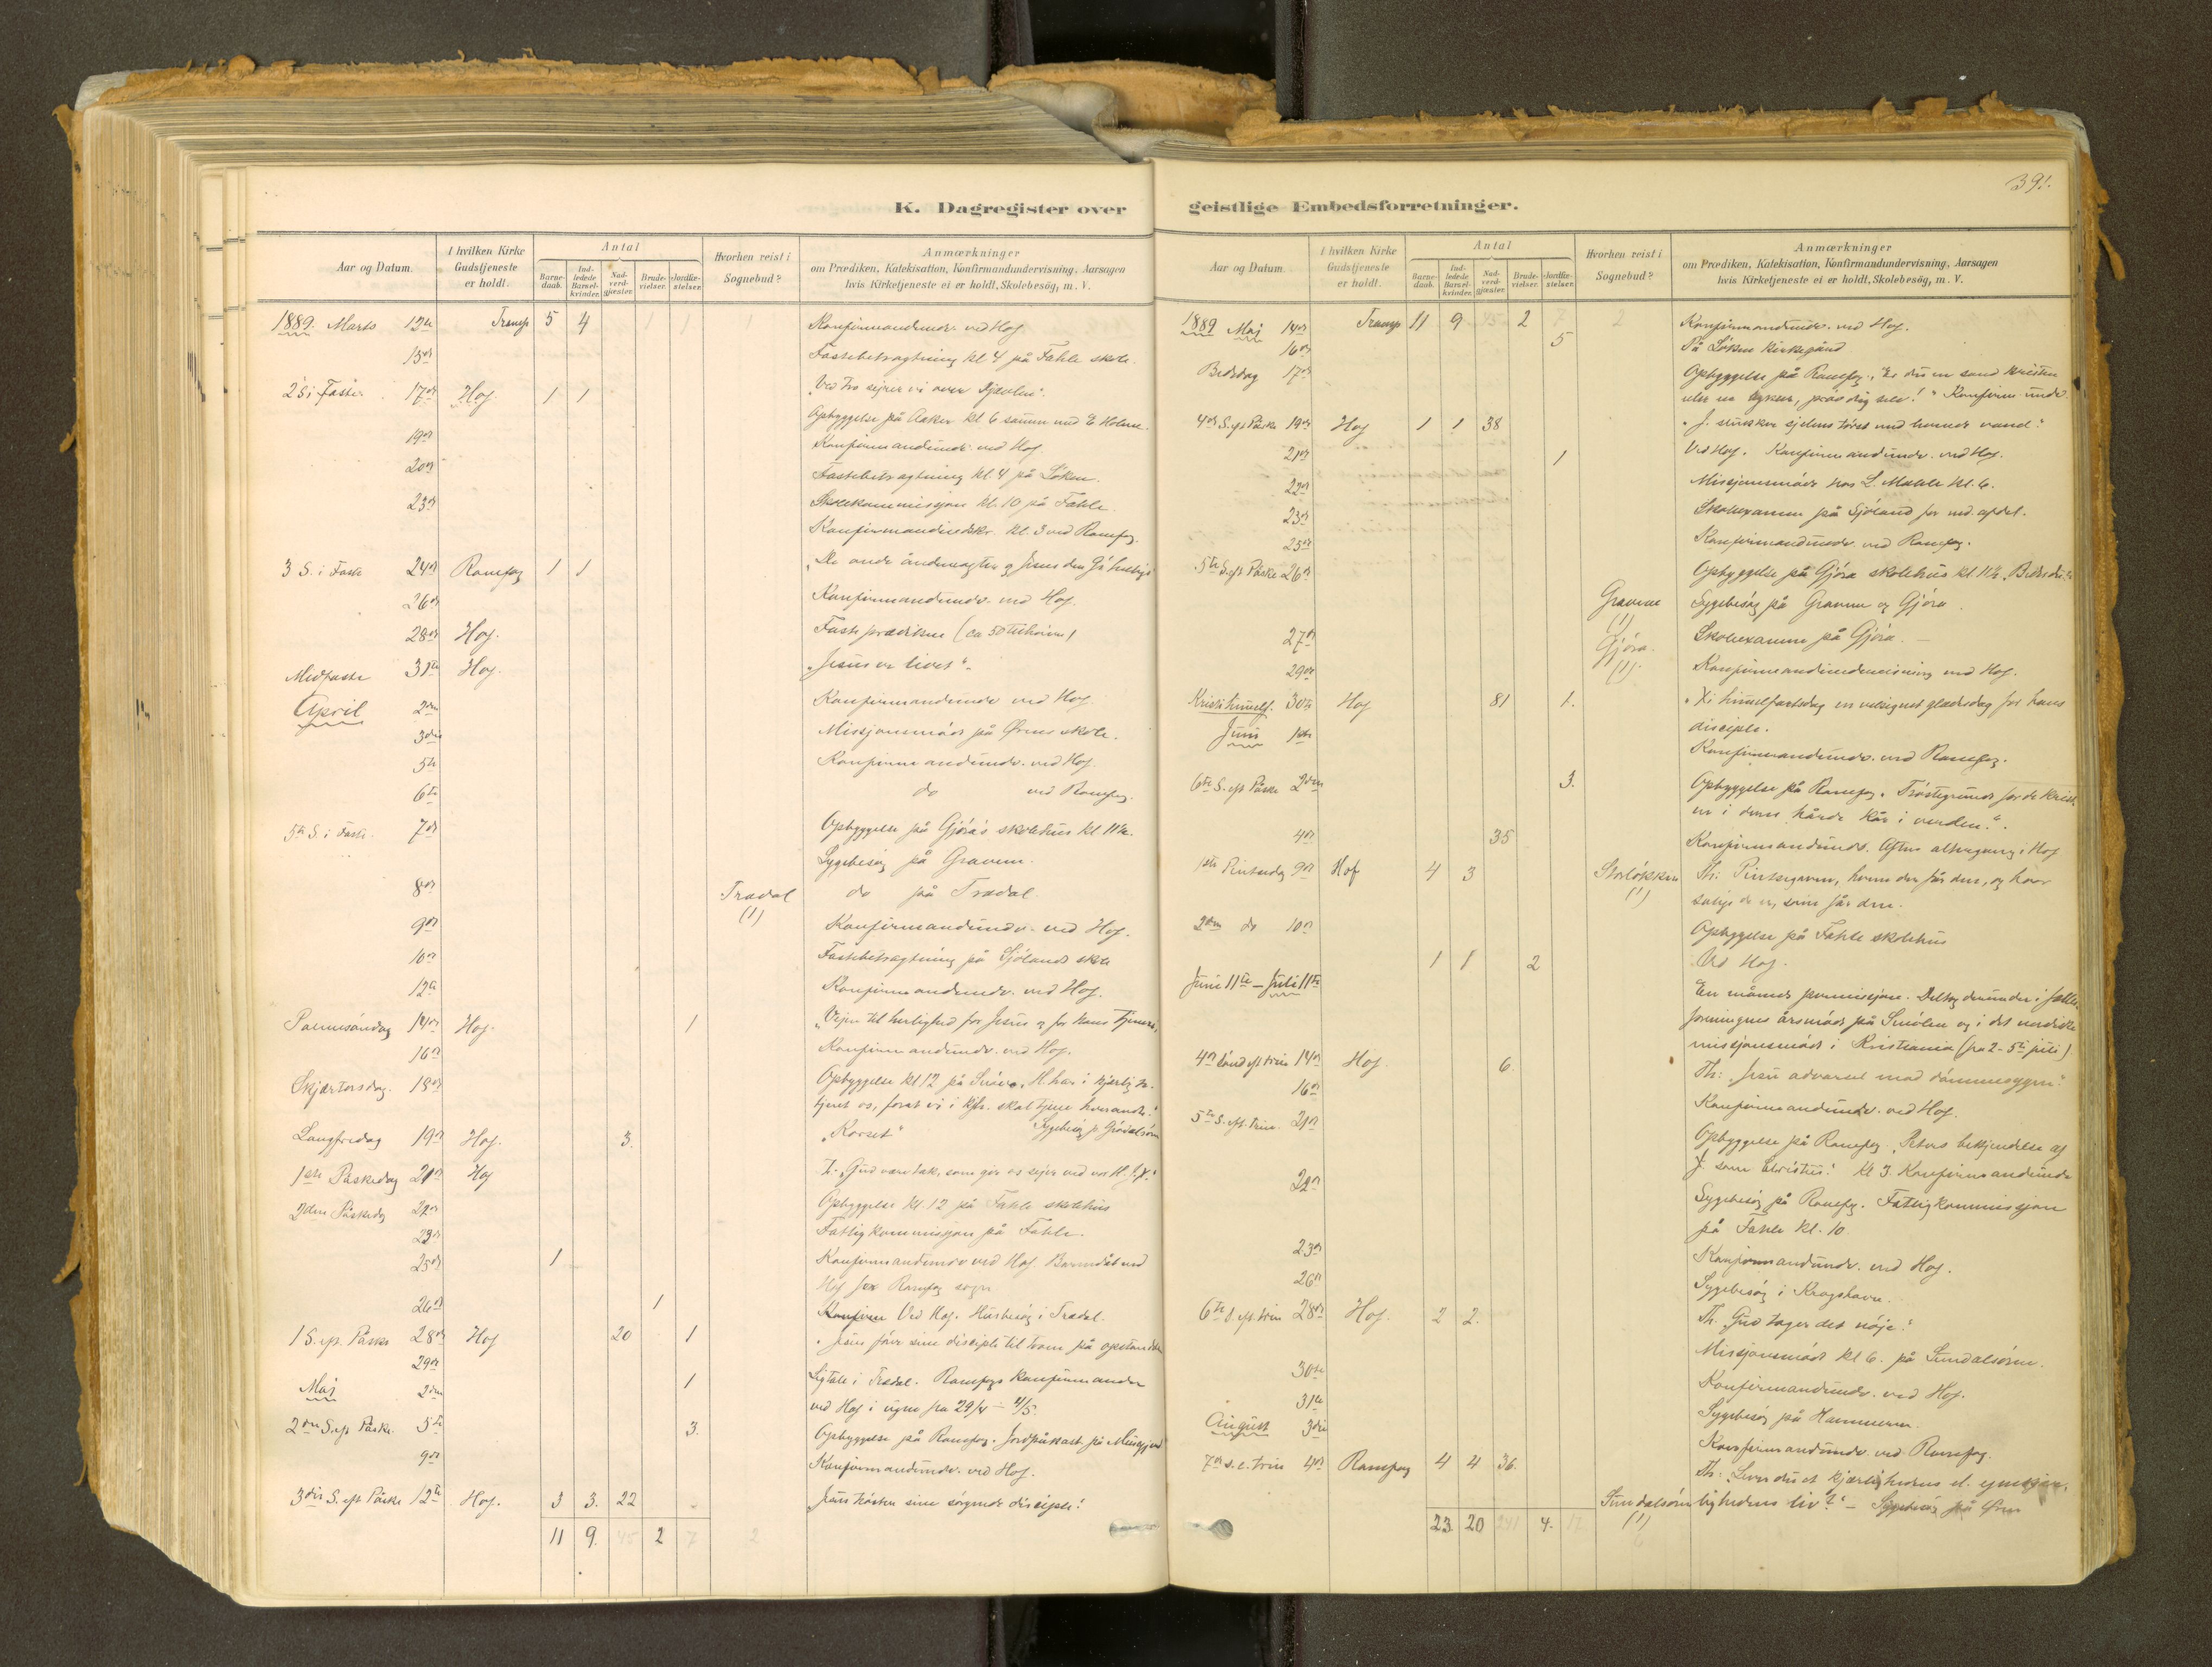 K. Dagregister over
Aar og Datum.
I hvilken Kirke Gudstjeneste er holdt.
Antal
Barne-daab.
Ind-ledede Barsel-kvinder.
Nad-verd-gjæster.
Brude-vielser.
Jordfæ-stelser.
Hvorhen reist i Sognebud?
Anmærkninger
om Prædiken, Katekisation, Konfirmandundervisning, Aarsagen
hvis Kirketjeneste ei er holdt, Skolebesøg, m. V.
1889. Marts 12te Transp 5 4 1 1 1 Konfirmandundv. ved Hof
15de Fastebetragtning kl 4 på Fahle skole.
2 S i Faste 17de Hof 1 1 „Ved tro sejrer vi over Djævlen“.
Opbyggelse på Aaker kl. 6 sammen med E Holme.
19de Konfirmandundv. ved Hof
20de Fastebetragtning kl. 4 på Løken.
23de Skolekommissjon kl. 10 på Fahle.
Konfirmandundv. kl. 3 ved Romfog.
3 S. i Faste 24de Romfog 1 1 „De onde åndemagter og Jesus den
26de Konfirmandundv. ved Hof.
28de Hof. Fasteprædiken (ca 50 tilhörere)
Midfaste 31te Hof. „Jesus er livet“.
April 2den Konfirmandundv ved Hof.
3die Missjonsmöde på Ørens skole.
5te Konfirmandundv. ved Hof.
6te do ved Romfog.
5te S. i Faste. 7de Opbyggelse på Gjöra's skolehus kl 11½.
Sygebesög på Gravem.
8de Trædal (1) do på Trædal.
9de Konfirmandundv. ved Hof.
10de Fastebetragtning på Sjölands skole
12te Konfirmandundv. ved Hof.
Palmesöndag 14de Hof. 1 „Vejen til herlighed for Jesus og for hans tjenere“
16de Konfirmandundv. ved Hof.
Skjærtorsdag. 18de Opbyggelse kl 12 på H. har i kjærligh.
tjent os, forat vi i kjh. skal tjene hverandre.“
Langfredag 19de Hof. 3. „Korset“ Sygebesög
1ste Påskedag 21de Hof Th. „Gud være tak, som gir os sejer ved vor H. J. X.“
2den Påskedag 22de Opbyggelse kl. 12 på Fahle skolehus
23de Fattigkommissjon på Fahle.
25de 1 Konfirmandundv ved Hof. Barnedåb ved
Hof for Romfog sogn
26de 1 Ved Hof. Husbesög i Trædal.
1 S. eft. Påske 28de Hof 20 1 „Jesus förer sine disciple til troen på opstandelsen
29de Ligtale i Trædal. Romfogs konfirmander
Maj 2den 1 ved Hof i ugen fra 29/4 – 4/5.
2den S. eft Påske. 5te 3. Opbyggelse på Romfog. Jordpåkast på
9de Konfirmandundv. ved Hof.
3die S. eft Påske 12te Hof. 3 3. 22 Jesus tröster sine sörgende disciple!
11 9. 45 2 7 2
391.
geistlige Embedsforretninger.
Aar og Datum.
I hvilken Kirke Gudstjeneste er holdt.
Antal
Barne-daab.
Ind-ledede Barsel-kvinder.
Nad-verd-gjæster.
Brude-vielser.
Jordfæ-stelser.
Hvorhen reist i Sognebud?
Anmærkninger
om Prædiken, Katekisation, Konfirmandundervisning, Aarsagen
hvis Kirketjeneste ei er holdt, Skolebesøg, m. V.
1889 Maj 14de Transp 11 9 45 2 7 2 Konfirmandundv. ved Hof.
16de 5 På Löken kirkegård
Bededag 17de Opbyggelse på Romfog. „Er du en sand kristen
eller en hykler, pröv dig selv!“ Konfirm. undv.
4de S. eft Påske 19de Hof 1 1 38 „J. slukker sjelens törst med levende vand“.
21de 1 Ved Hof. Konfirmandundv. ved Hof.
22de Missjonsmöde hos L. kl. 6.
23de Skoleexamen på Sjöland for ned. afdel.
25de Konfirmandundv. ved Romfog.
5te S. eft Påske 26de Opbyggelse på Gjöra skolehus kl. 11½.
Gravem (1) Sygebesög på Gravem og Gjöra.
27de Gjöra. (1) Skoleexamen på Gjöra.
29de Konfirmandundervisning ved Hof.
Kristi himmelf. 30te Hof 81 1. „Xi himmelfartsdag en velsignet glædesdag for hans
disciple.
Juni 1ste Konfirmandundv. ved Romfog.
6te S. eft Påske 2den 3. Opbyggelse på Romfog. „Tröstegrunde for de krist-
ne i deres hårde kår i verden.“.
4de 35 Konfirmandundv. Aften altergang i Hof
1ste Pintsedag 9de Hof 4 3 Storløkken (1) Th: Pintsegaven, hvem der får den, og hvor
salige de er, som får den.
2den do 10de Opbyggelse på Fahle skolehus
1 1 2 Ved Hof.
Juni 11te – Juli 11te En måneds permissjon. Deltog derunder i
foreningens årsmöde på Smölen og i det nordiske
missjonsmöde i Kristiania (fra 2–5te juli)
4de sönd eft trin 14de Hof. 6. Th: „Jesu advarsel mod dömmesygen“.
16de Konfirmandundv. ved Hof.
5te S. eft. Trin. 21de Opbyggelse på Romfog. „Peters bekjendelse af
J. som Christus“. Kl 3. Konfirmandundv
22de Sygebesög på Romfog. Fattigkommissjon
på Fahle kl. 10.
23de Konfirmandundv. ved Hof.
26de Sygebesög i
6te S. eft. trin 28de Hof. 2 2. Th. „Gud tager det nöje“.
30te Missjonsmöde kl 6. på Sundalsören.
31te Konfirmandundv. ved Hof.
August 3die Sygebesög på Hammeren.
Konfirmandundv. ved Romfog.
7de s. e. trin 4de Romfog 4 4 36. Th: „Lever du et kjærlighedens el.
Sundalsören (1) lighedens liv?“ – Sygebesög på Ören
23 20 241 4. 17 6